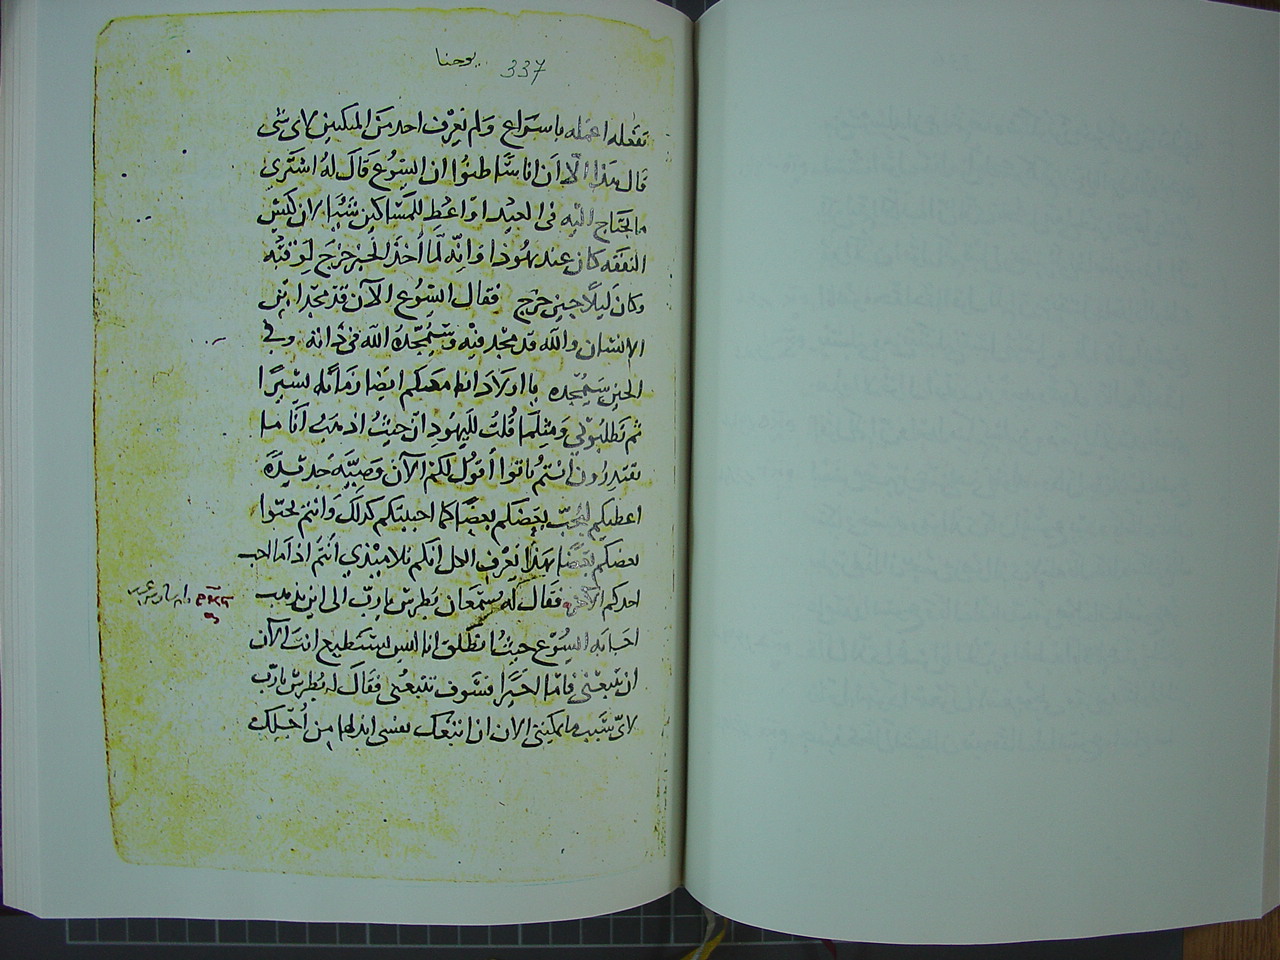 يوحنا 337
تفعله اعمله باسراع ولم يعرف احد من المتكيين لاى شى
قال هذا الّا ان اناسًا ظنوا ان ايسوع قال له اشترى
ما يحتاج اليه فى العيد او اعط للمساكين شيا لان كيس
النفقه كان عند يهوذا وانه لما أخذ الخبز خرج لوقته
وكان ليلًا حين خرج فقال ايسوع الآن قد مجد ابن
الانسان والله قد مجد فيه وسيمجده الله فى ذاته وفى
الحين سيمجده يا اولاد انا معكم ايضا زمانه يسيرا
ثم تطلبونى ومثلما قلت لليهود ان حيث اذهب أنا ما
تقتدرون انتم تاتوا أقول لكم الآن وصيّه جديدة
اعطيكم ليحب بعضكم بعضًا كما احببتكم كذلك وانتم تحبّوا
بعضكم بعضًا بهذا يعرف الحل انكم تلاميذي أنتم اذا ما احب
احدكم الاخر فقال له سمعان بطرس يا ربّ الى اين تذهب
اجابه ايسوع حيث انطلق انا ليس تستطيع انت الآن
ان تتبعنى فامّا اخيرا فسوف تتبعنى فقال له بطرس يا ربّ
لاىّ سبب ما يمكننى الان ان اتبعك نفسى ابذلها من أجلك